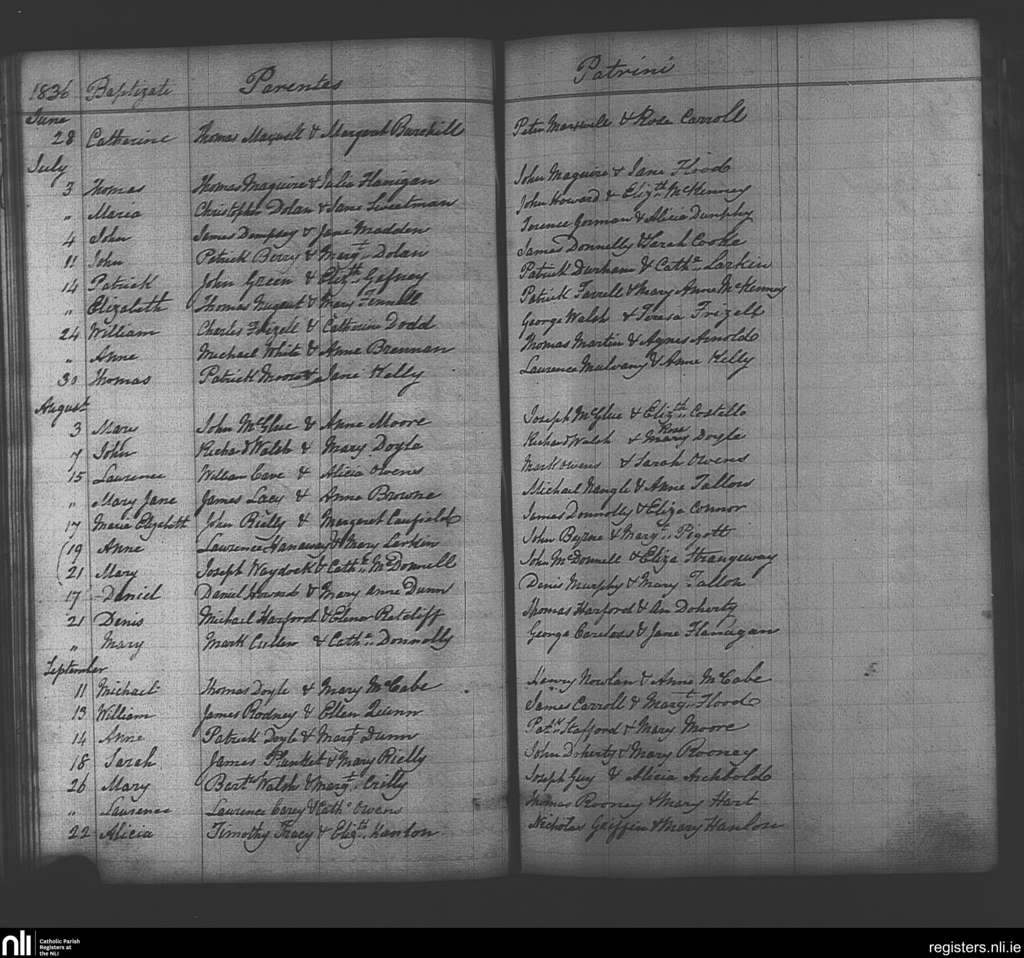 1836 Baptizati Parentes Patrini
June
28 Catherine Thomas & Margaret Burchill Peter & Rose Carroll
July
3 Thomas Thomas Maguire & Julia Flanigan John Maguire & Jane Flood
" Maria Christopher Dolan & Jane Sweetman John Howard & Elizth McKenney
4 John James Dempsey & Jane Madden Terence Gorman & Alicia Dunphy
11 John Patrick Berry & Margt Dolan James Donnelly & Sarah Cooke
14 Patrick John Green & Elizth Gefney Patrick Durham & Cathn Larkin
" Elizabeth Thomas Nugent & Mary Fennell Patrick Farrell & Mary Anne McKenney
24 William Charles Frizell & Catherine Dodd George Walsh & Teresa Frizell
" Anne Michael White & Anne Brennan Thomas Martin & Agnes Arnold
30 Thomas Patrick Moore & Jane Kelly Laurence Mulvany & Anne Kelly
August
3 Mary John McGlue & Anne Moore Joseph McGlue & Elizth Costello
7 John Richard Walsh & Mary Doyle Richard Walsh & Mary Rose Doyle
15 Laurence William Cave & Alicia Owens Mark Owens & Sarah Owens
" Mary Jane James Lacy & Anne Browne Michael Nangle & Anne Tallon
17 Maria Elizabeth John Rielly & Margaret Canfield James Donnolly & Eliza Connor
19 Anne Lawrence Hanaway & Mary Larkin John Byrne & Margt Pigott
21 Mary Joseph Waydock & Cathn McDonnell John McDonnell & Eliza Strangeway
17 Daniel Daniel Howard & Mary Anne Dunn Denis Murphy & Mary Tallon
21 Denis Michael Harford & Elenor Ratcliff Thomas Harford & Ann Doherty
" Mary Mark Cullen & Cathn Donnolly George Careless & Jane Flanagan
September
11 Michael Thomas Doyle & Mary McCabe Henry Nowlan & Anne McCabe
13 William James Rodney & Ellen Quinn James Carroll & Margt Flood
14 Anne Patrick Doyle & Margt Dunn Patk Stafford & Mary Moore
18 Sarah James Plunkett & Mary Rielly John Doherty & Mary Rooney
26 Mary Bart Walsh & Margt Crilly Joseph Guy & Alicia Archbold
" Laurence Laurence Carey & Cathn Owens Thomas Rooney & Mary Hart
22 Alicia Timothy Tracy & Elizth Hanlon Nicholas Griffin & Mary Hanlon
nli Catholic Parish Registers at the NLI registers.nli.ie